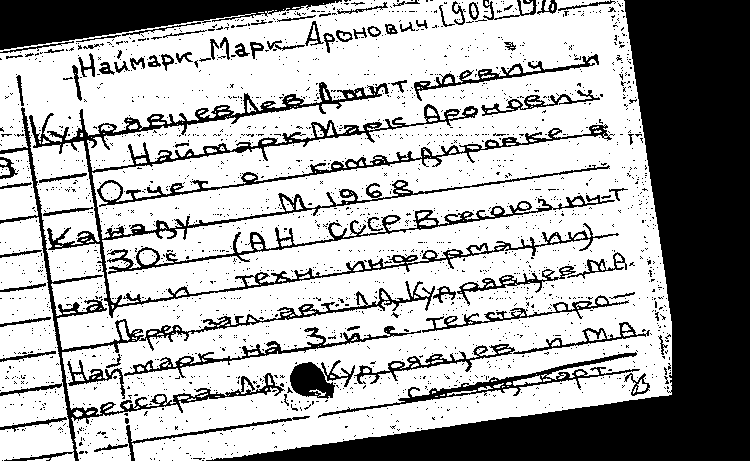 Наймарк, Марк Аронович 1909-1978
Кудрявцев, Лев Дмитриевич и
Наймарк, Марк Аронович.
Отчет о командировке в
Канаду. М, 1968
30с. (АН СССР. Всесоюз. ин-т
науч. и техн. информации)
Перед загл. авт.: Л.Д. Кудрявцев, М.А.
Наймарк, на 3-й с. текста: про-
фессора Л.Д. Кудрявцев и М.А.
карт.